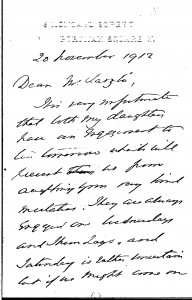 PORTMAN SQUARE W.
20 November 1912
Dear Mr László,
It is very unfortunate
that both my daughters
have an engagement to
tomorrow which will
prevent us from
accepting your very kind
invitation. They are always
engaged on Wednesdays
and Thursdays, and
Saturday is rather uncertain
but if we might come on